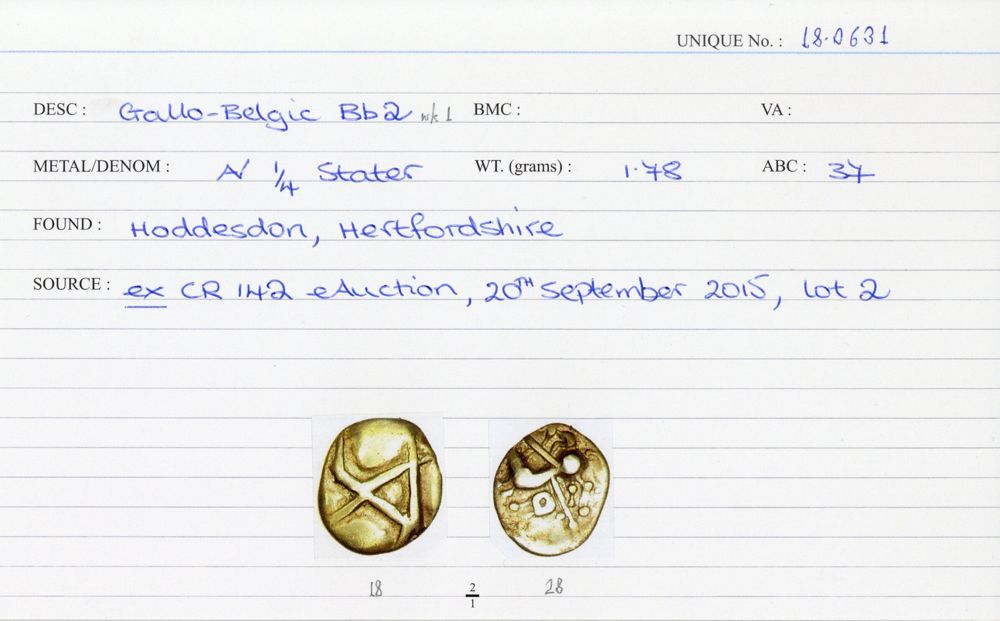 UNIQUE No. : 18.0631
DESC : Gallo-Belgic Bb2 wk 1 BMC : VA :
METAL/DENOM : A/ 1/4 Stater WT. (grams) : 1.78 ABC : 37
FOUND : Hoddesdon, Hertfordshire
SOURCE : ex CR 142 eAuction, 20TH September 2015, lot 2
18 2/1 28